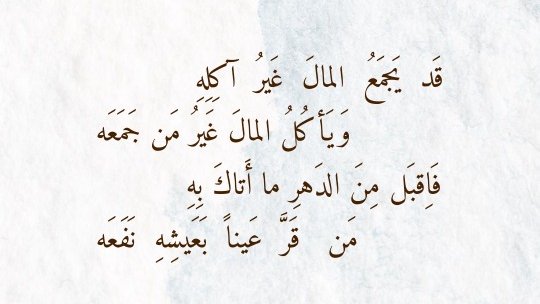 قَد يَجمَعُ المالَ غَيرُ آكِلِهِ
وَيَأكُلُ المالَ غَيرُ مَن جَمَعَه
فَاِقبَل مِنَ الدَهرِ ما أَتاكَ بِهِ
مَن قَرَّ عَيناً بَعَيشِهِ نَفَعَه